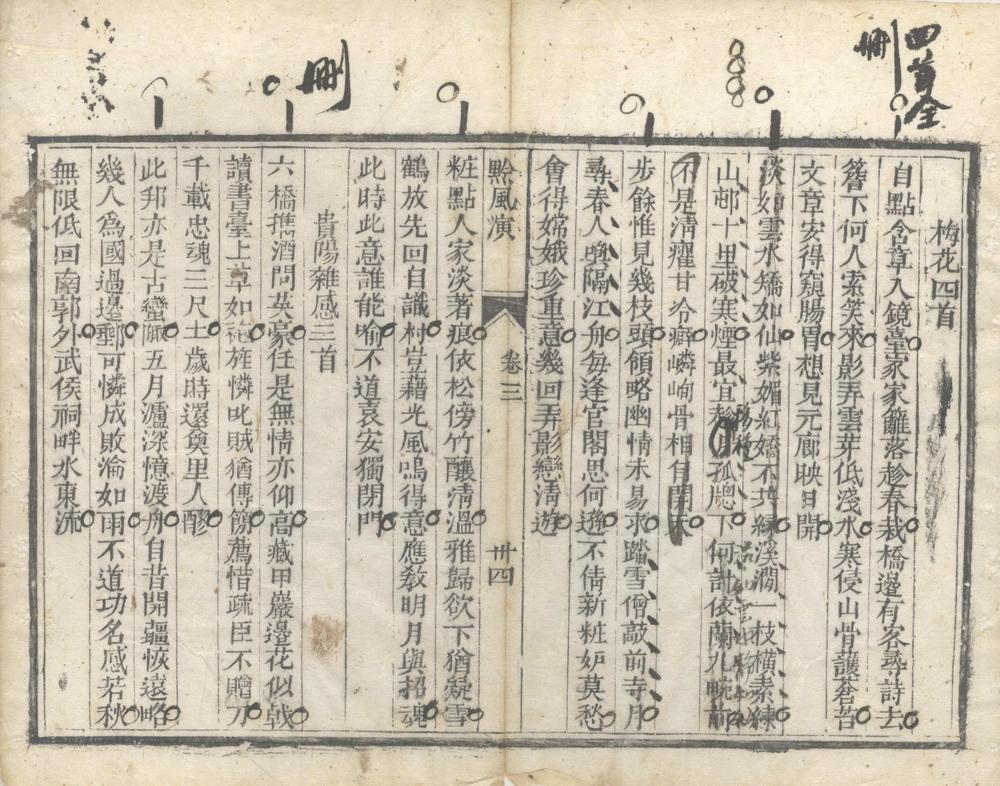 四首全
刪
刪
梅花四首
自點含章入鏡臺家家籬落趁春栽橋邊有客尋詩去
簷下何人索笑來影弄雲芽低淺水寒侵山骨護蒼苔
文章安得窺腸胃想見元廊映日開
淡如雲水矯如仙紫媚紅嬌不共緣溪澗一枝橫素練
山邨十里破寒煙最宜 月孤牕下何計依蘭九畹前
不是清癯甘冷癖嶙峋骨相自閉天
步餘惟見幾枝頭領略幽情未易求踏雪僧敲前寺月
尋春人喚隔江舟每逢官閣思何遜不倩新粧妒莫愁
會得嫦娥珍重意幾回弄影戀清遊
黔風演
卷三
卅四
粧點人家淡著痕依松傍竹釀清溫雅歸欲下猶凝雪
鶴放先回自識村豈藉光風鳴得意應教明月與招魂
此時此意誰能喻不道袁安獨閉門
貴陽雜感三首
六橋攜酒問英豪任是無情亦仰高藏甲巖邊花似戟
讀書臺上草如袍旄憐叱賊猶傳笏薦惜疏臣不贈刀
千載忠魂三尺土歲時還奠里人醪
此邦亦是古蠻陬五月瀘深憶渡舟自昔開疆恢遠略
幾人為國過邊郵可憐成敗淪如雨不道功名感若秋
無限低回南郭外武侯祠畔水東流